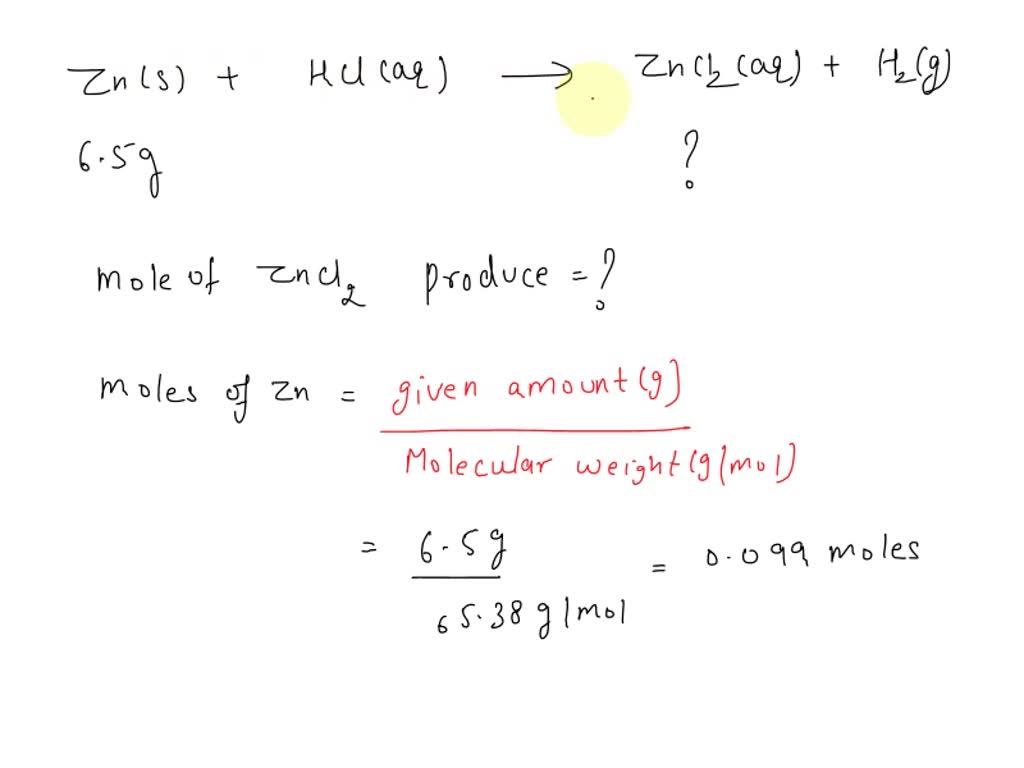 Zn(s) + HCl(aq) → ZnCl₂(aq) + H₂(g)
6.5g ?
mole of ZnCl₂ produce = ?
moles of Zn = given amount(g)
Molecular weight(g/mol)
= 6.5g = 0.099 moles
65.38 g/mol